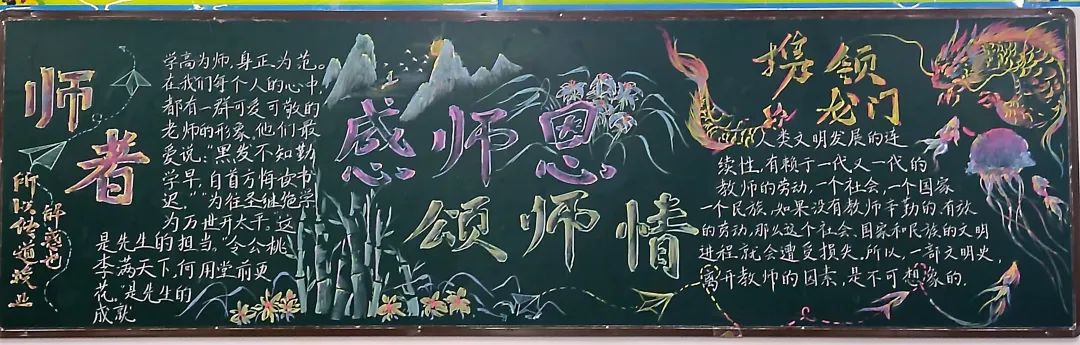 师
者
所以传道授业
解惑也
学高为师,身正为范。
在我们每个人的心中,
都有一群可爱可敬的
老师的形象,他们最
爱说:“黑发不知勤
学早,白首方悔读书
迟,”“为往圣继绝学
为万世开太平。”这
是先生的担当,“令公桃
李满天下,何用堂前更
花。”是先生的
成就
感师恩
颂师情
携领
龙门
人类文明发展的连
续性,有赖于一代又一代的
教师的劳动,一个社会,一个国家
一个民族,如果没有教师辛勤的,有效
的劳动,那么这个社会、国家和民族的文明
进程就会遭受损失,所以,一部文明史,
离开教师的因素,是不可想像的.